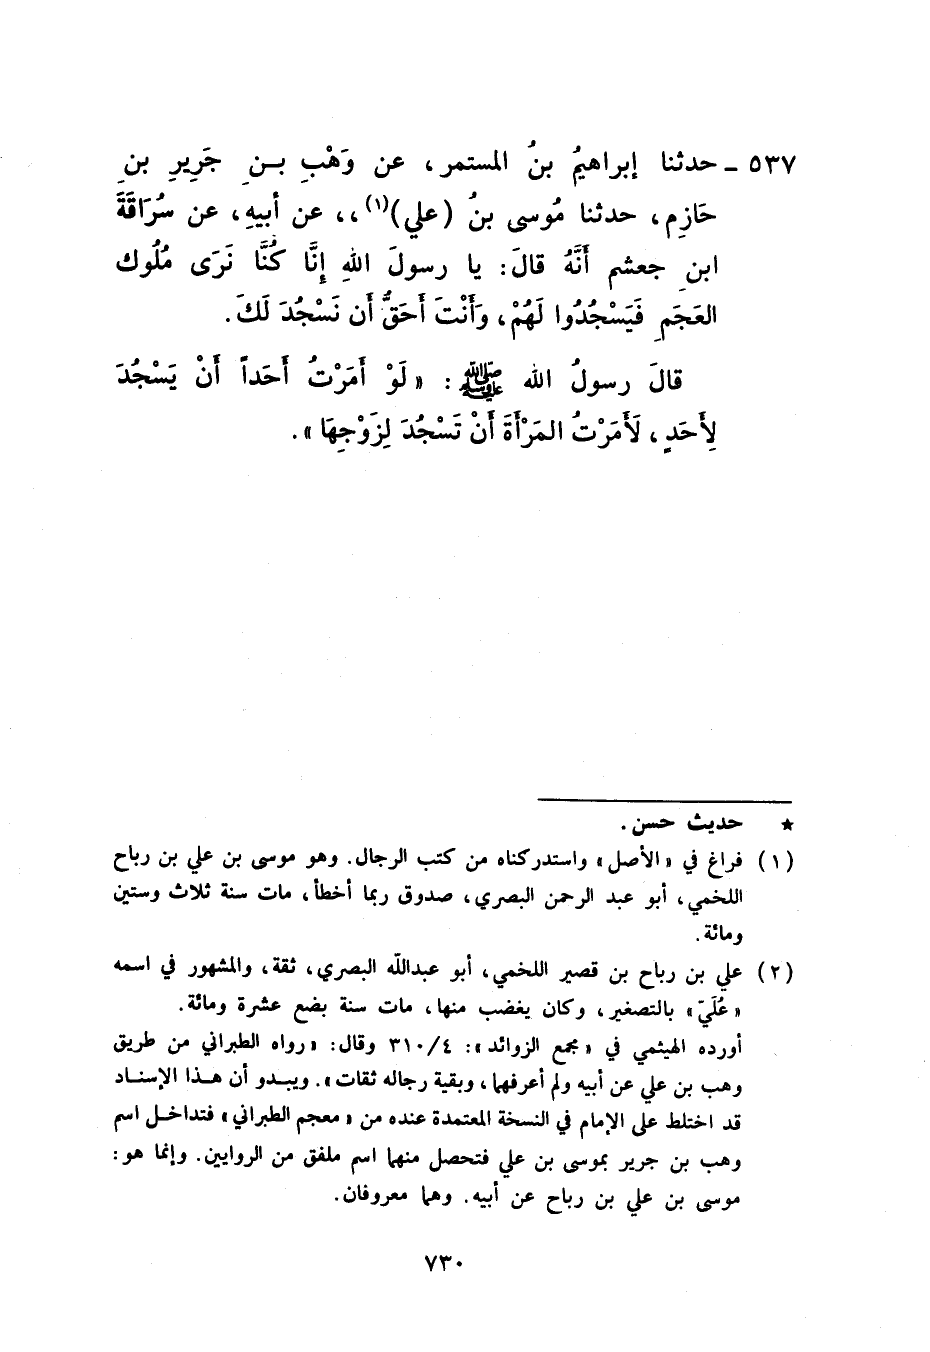 ٥٣٧ ـ حدثنا إبراهيمُ بنُ المستمر، عن وَهْبِ بــنِ جَرِيرِ بنِ
حَازِم، حدثنا مُوسى بنُ (علي)(١)،، عن أبيهِ، عن سُرَاقَةَ
ابنِ جعشم أَنَّهُ قالَ: يا رسولَ اللهِ إنَّا كُنَّا نَرَى مُلُوك
العَجَمِ فَيَسْجُدُوا لَهُمْ، وَأَنْتَ أَحَقُّ أَن نَسْجُدَ لَكَ.
قالَ رسولُ الله ﷺ: «لَوْ أَمَرْتُ أَحَداً أَنْ يَسْجُدَ
لِأَحَدٍ، لَأَمَرْتُ المَرْأَةَ أَنْ تَسْجُدَ لِزَوْجِهَا».
★ حديث حسن.
(١) فراغ في «الأصل» واستدركناه من كتب الرجال. وهو موسى بن علي بن رباح
اللخمي، أبو عبد الرحمن البصري، صدوق ربما أخطأ، مات سنة ثلاث وستين
ومائة.
(٢) علي بن رباح بن قصير اللخمي، أبو عبدالله البصري، ثقة، والمشهور في اسمه
«عُلَيّ» بالتصغير، وكان يغضب منها، مات سنة بضع عشرة ومائة.
أورده الهيثمي في «مجمع الزوائد»: ٣١٠/٤ وقال: «رواه الطبراني من طريق
وهب بن علي عن أبيه ولم أعرفهما، وبقية رجاله ثقات». ويبدو أن هـذا الإسنـاد
قد اختلط على الإمام في النسخة المعتمدة عنده من «معجم الطبراني» فتداخـل اسم
وهب بن جرير بموسى بن علي فتحصل منهما اسم ملفق من الروايين. وإنما هو:
موسى بن علي بن رباح عن أبيه. وهما معروفان.
٧٣٠